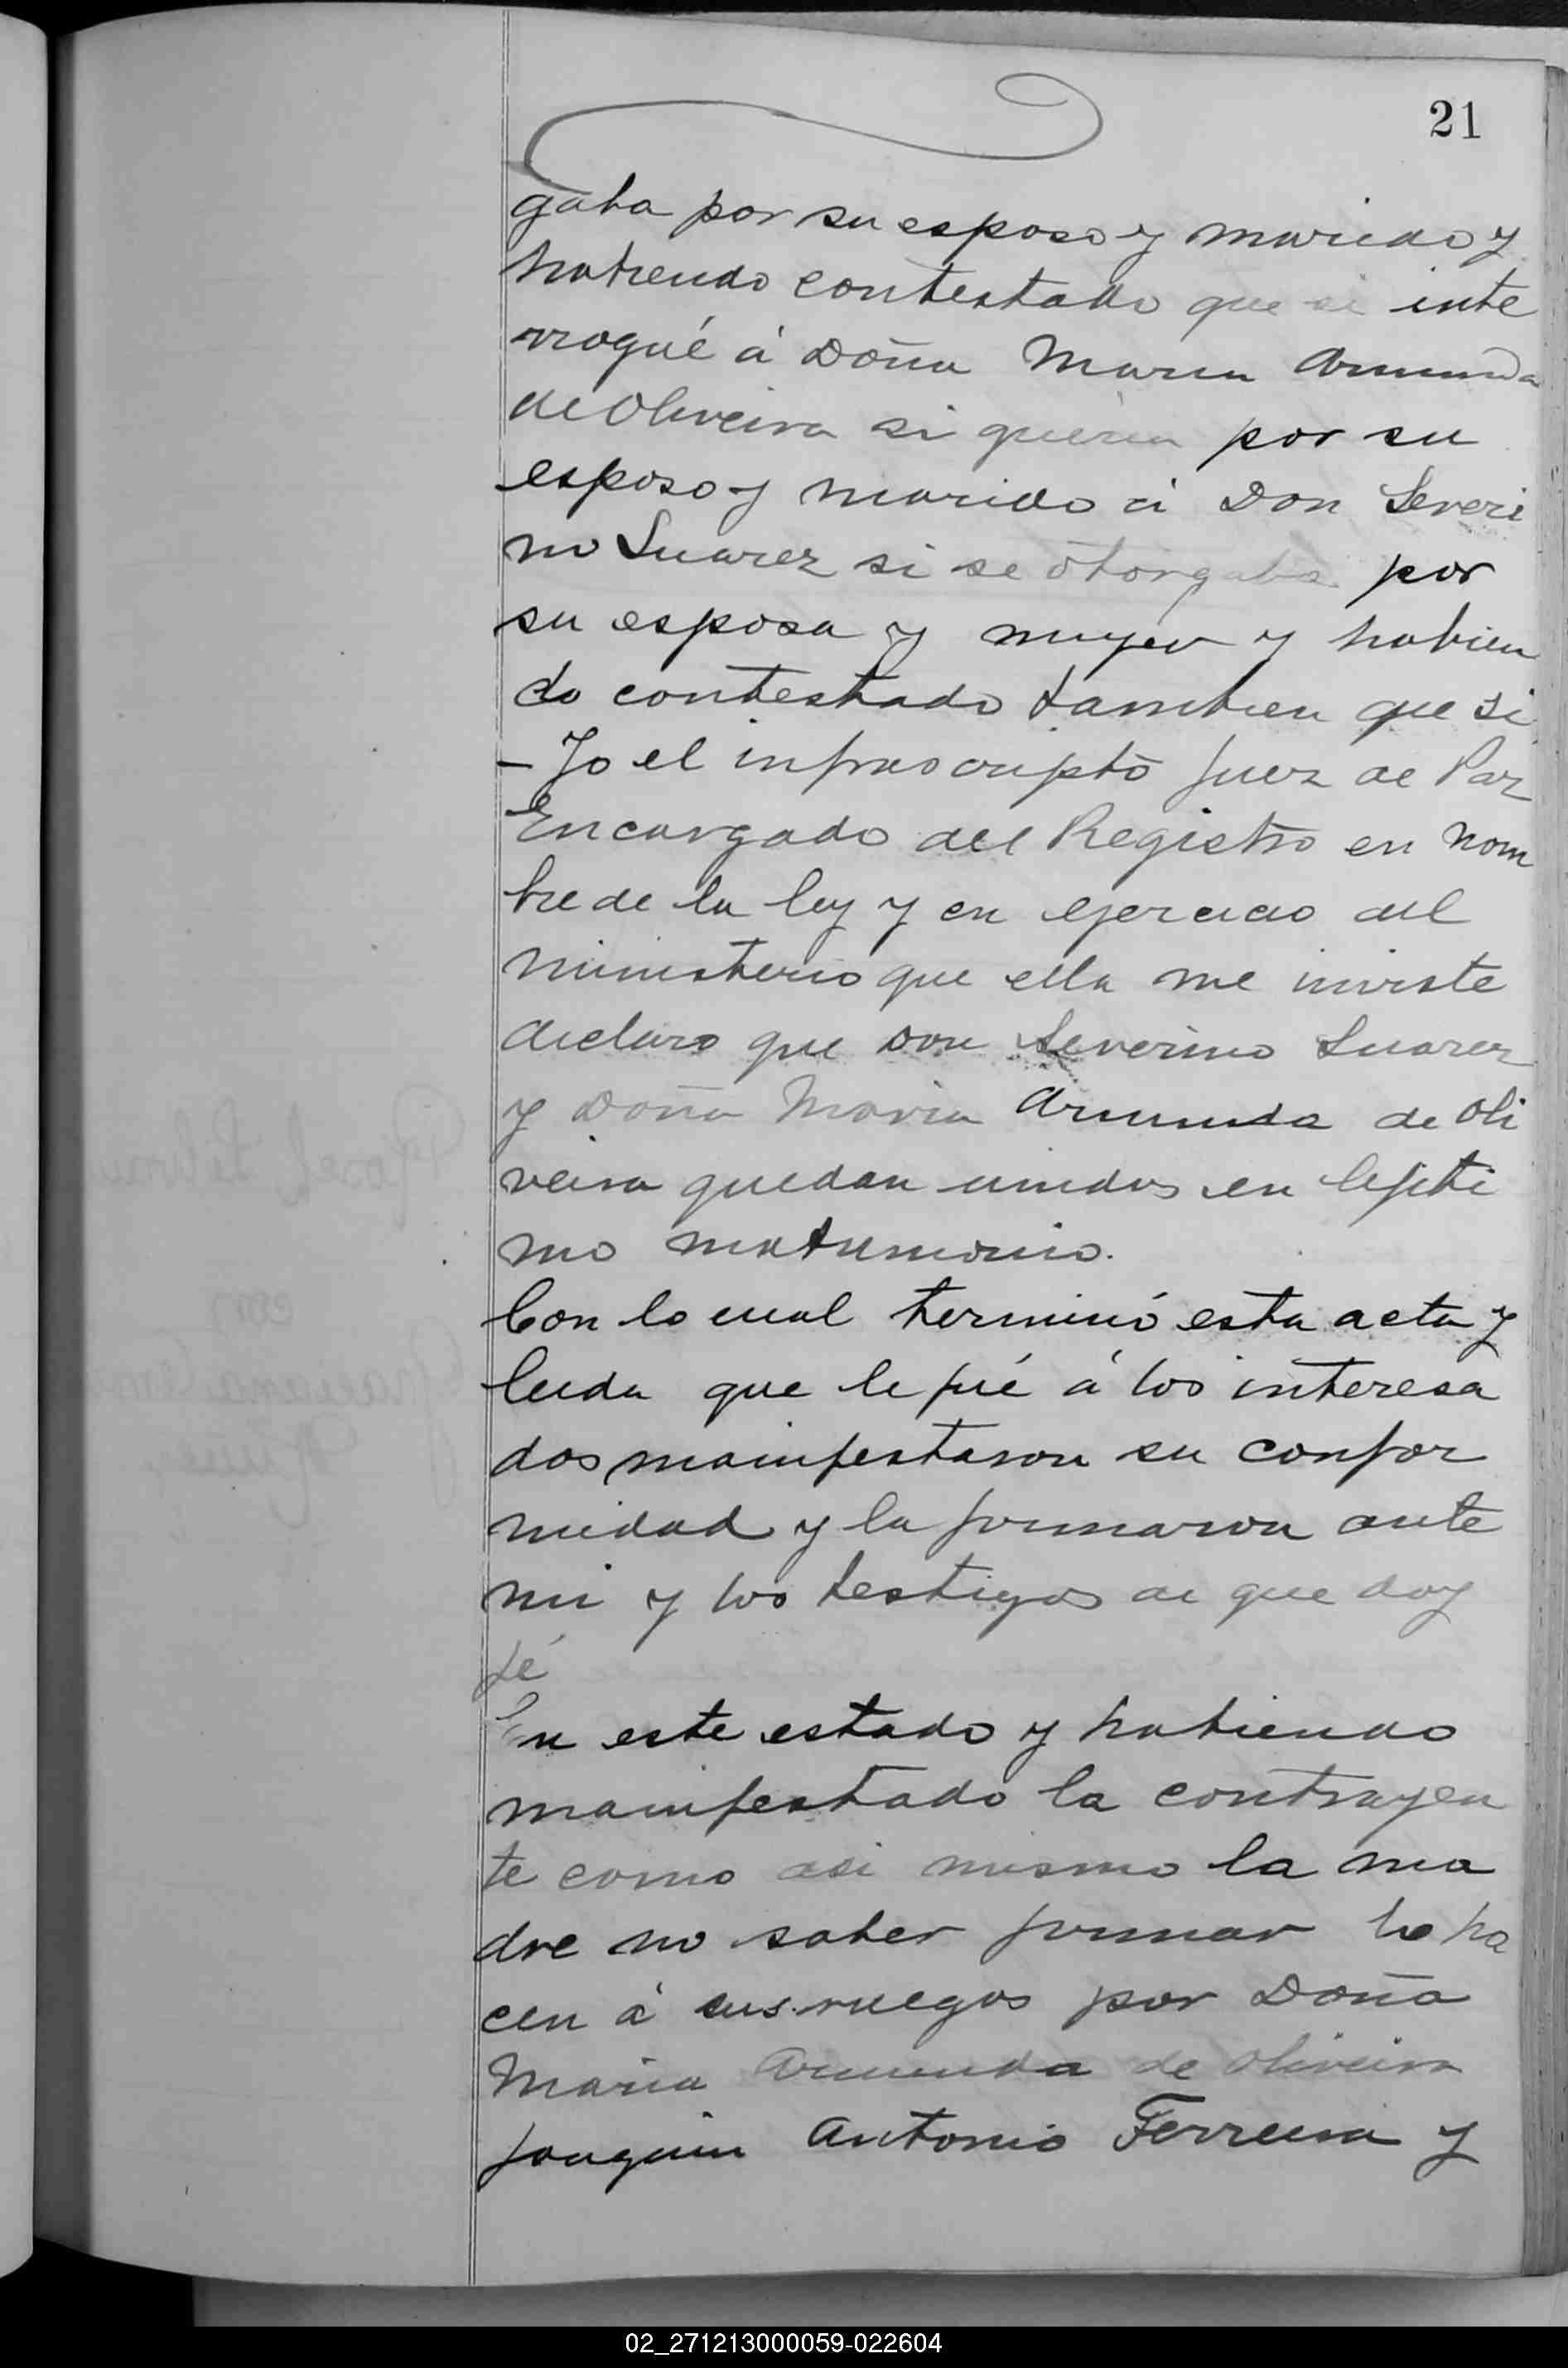 21
gaba por su esposo y marido y
habiendo contestado que si inte
rrogué á Doña Maria Armunda
de Oliveira si queria por su
esposo y marido á Don Severi
no Suarez si se otorgaba por
su esposa y muyer y habien
do contestado tambien que si
– Yo el infrascripto Juez de Paz
Encargado del Registro en nom
bre de la ley y en ejercicio del
ministerio que ella me inviste
declaro que Don Severino Suarez
y Doña Maria Armunda de Oli
veira quedan unidos en lejiti
mo matrimonio.
Con lo cual terminó esta acta y
leida que le fué á los interesa
dos manifestaron su confor
midad y la firmaron ante
mi y los testigos de que doy
fé
En este estado y habiendo
manifestado la contrayen
te como asi mismo la ma
dre no saber firmar lo ha
cen á sus ruegos por Doña
Maria Armunda de Oliveira
Joaquin Antonio Ferreira y
02_271213000059-022604